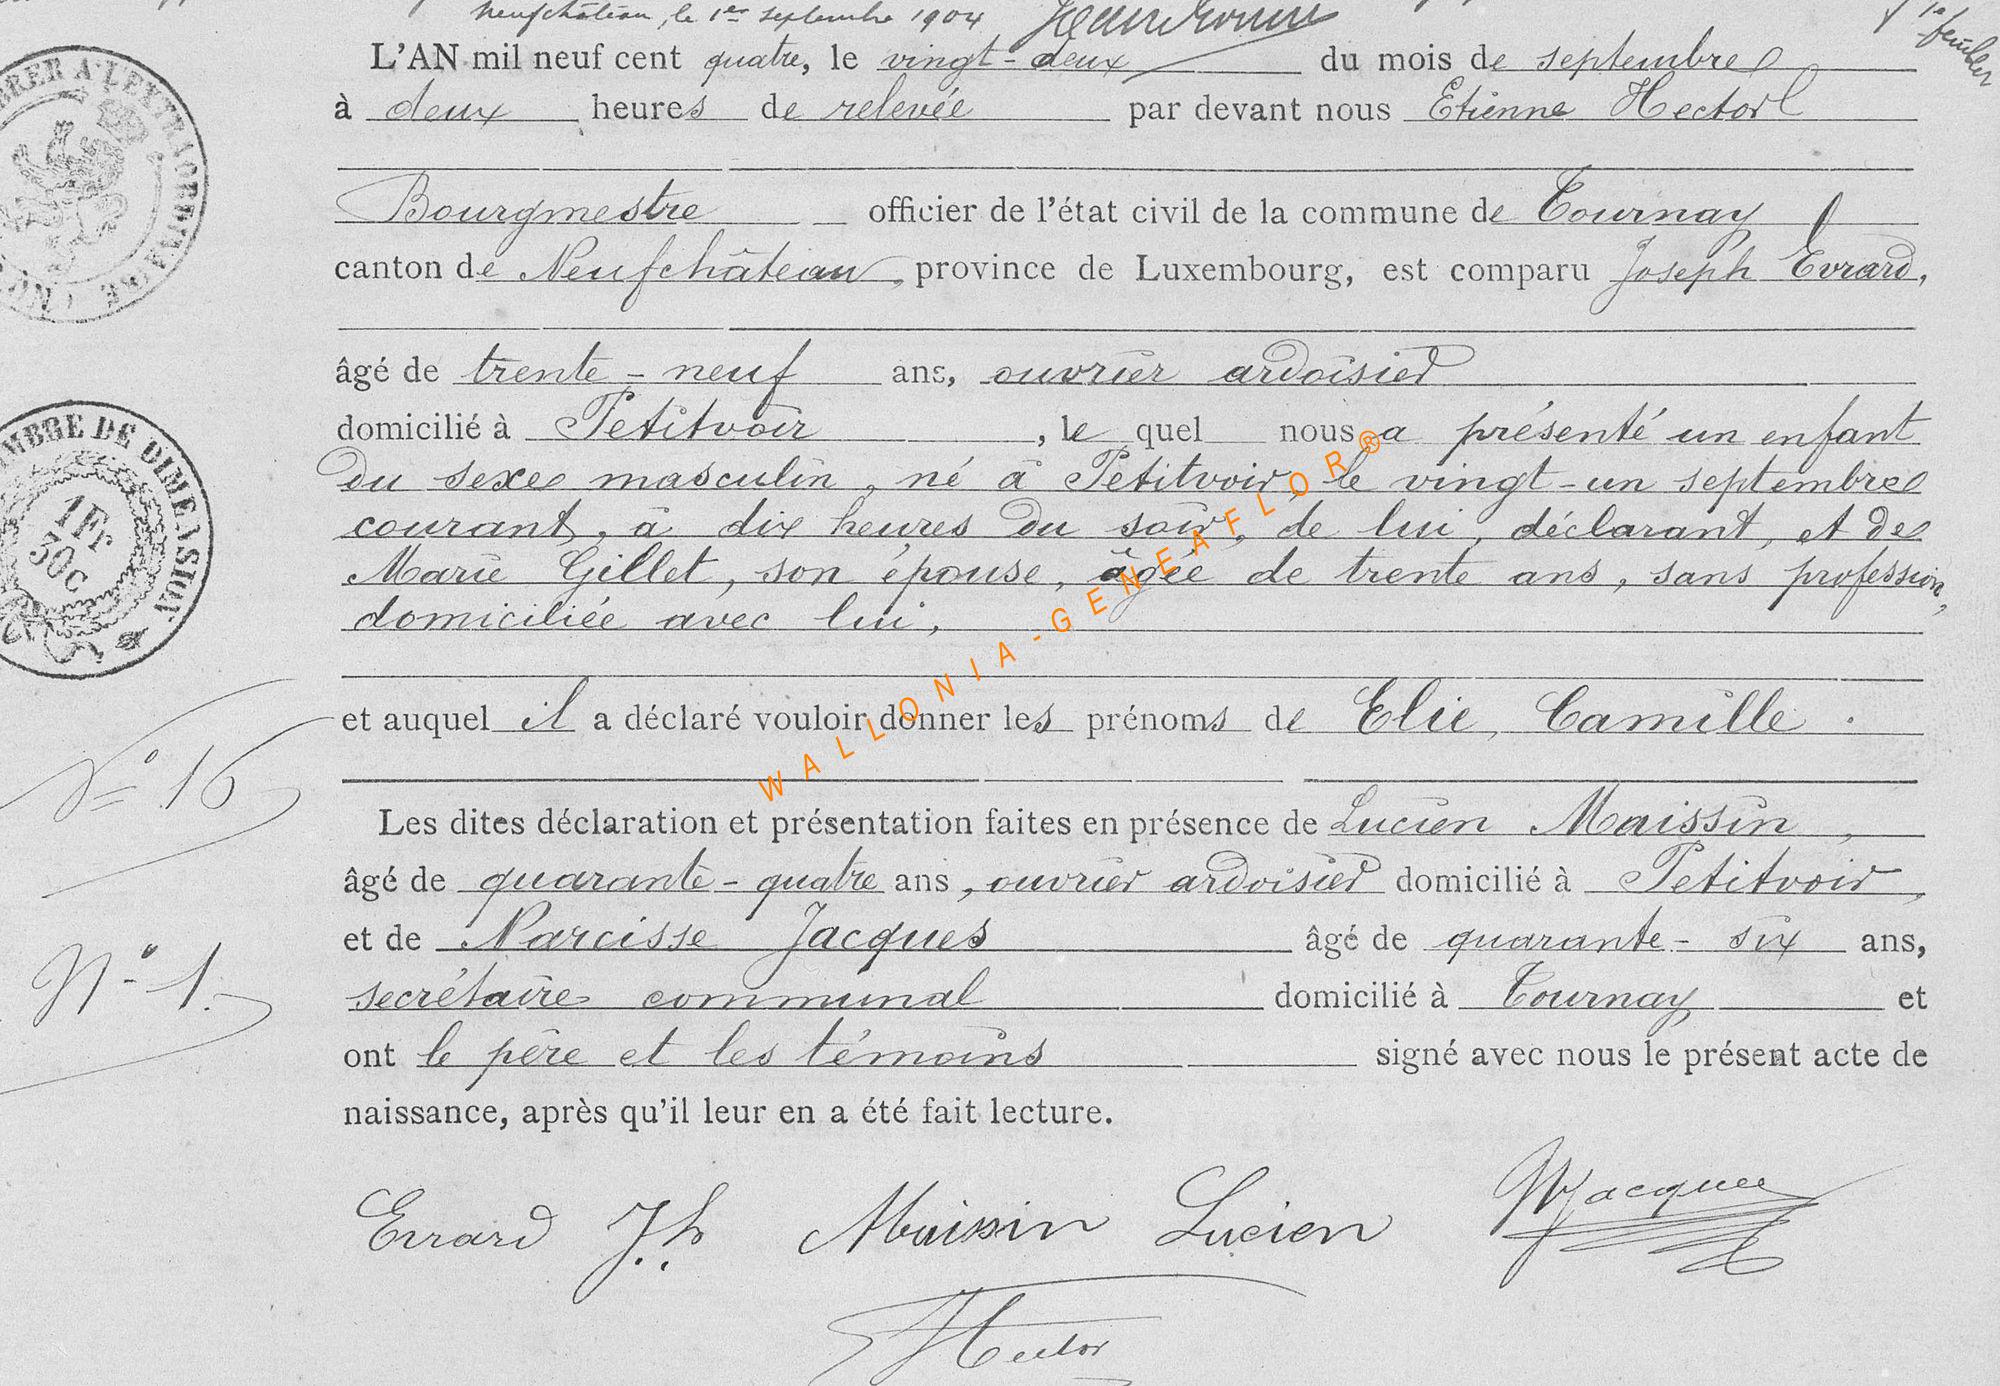 Neufchâteau, le 1er septembre 1904
1e feuillet
L'AN mil neuf cent quatre, le vingt-deux du mois de septembre
à deux heures de relevée par devant nous Etienne Hector
Bourgmestre officier de l'état civil de la commune de Tournay
canton de Neufchâteau, province de Luxembourg, est comparu Joseph Evrard,
âgé de trente-neuf ans, ouvrier ardoisier
domicilié à Petitvoir, le quel nous a présenté un enfant
du sexe masculin, né à Petitvoir, le vingt-un septembre
courant, à dix heures du soir, de lui, déclarant, et de
Marie Gillet, son épouse, âgée de trente ans, sans profession,
domiciliée avec lui,
et auquel il a déclaré vouloir donner les prénoms de Elie, Camille.
Les dites déclaration et présentation faites en présence de Lucien Maissin,
âgé de quarante-quatre ans, ouvrier ardoisier domicilié à Petitvoir,
et de Narcisse Jacques âgé de quarante-six ans,
secrétaire communal domicilié à Tournay et
ont le père et les témoins signé avec nous le présent acte de
naissance, après qu'il leur en a été fait lecture.
Evrard J.h Maissin Lucien NJacques
Hector
N° 16
N° 1.
1Fr
30C
WALLONIA-GENEAFLOR®